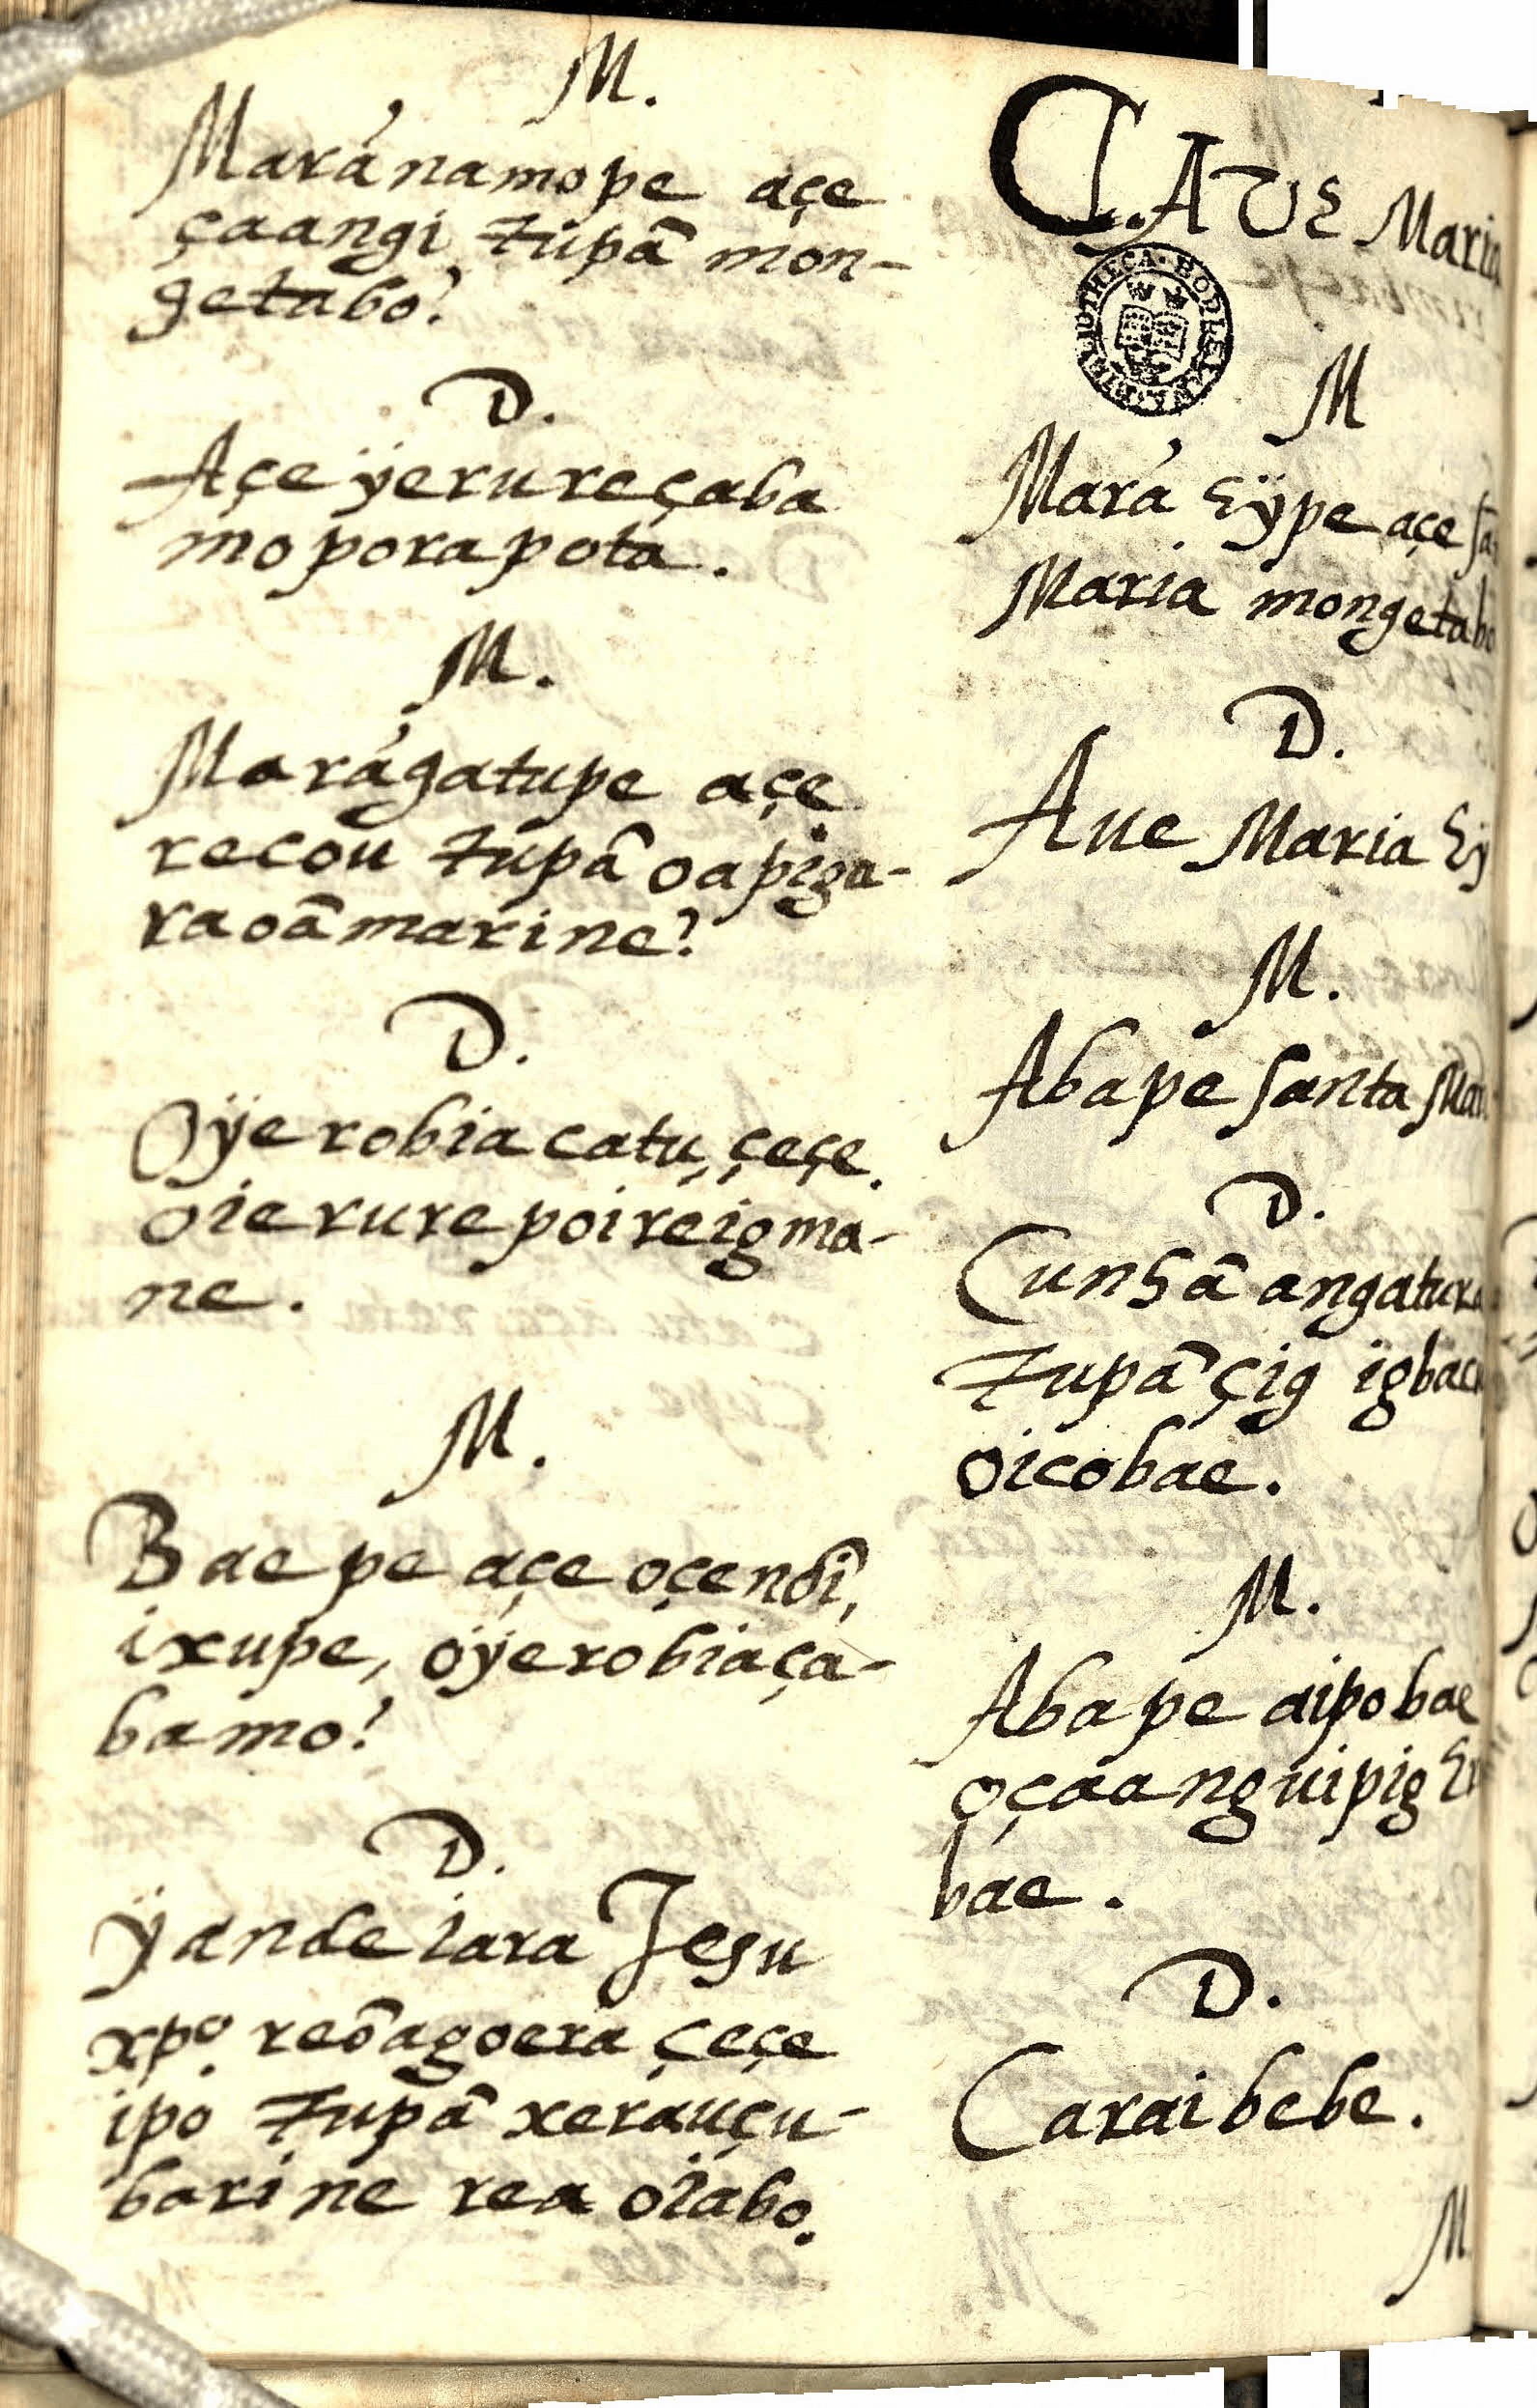 M.
Maránamope açe
çaangi tupã mon-
getabo?
D.
Açe ÿerureçaba
moporapota.
M.
Marágatupe açe
recou tupã oapiga-
raoãmarine?
D.
Oÿerobiacatu, çeçe.
oierurepoireigma-
ne.
M.
Baepe açe oçendĩ,
ixupe, oÿerobiaça-
bamo?
D.
ÿande iara Jesu
xp͂o reõagoera çeçe
ipo tupã xerauçu-
barine rea oiabo.
¶. AVE Maria
BIBLIOTHECA · BODLEIANA
M
Mará eÿpe açe
Maria mongetabo
D.
Aue Maria
M.
Abape santa
D.
Cunhã
tupã çig
oicobae.
M.
Abape aipobae
oçaanguipig
bae.
D.
Caraibebe.
M